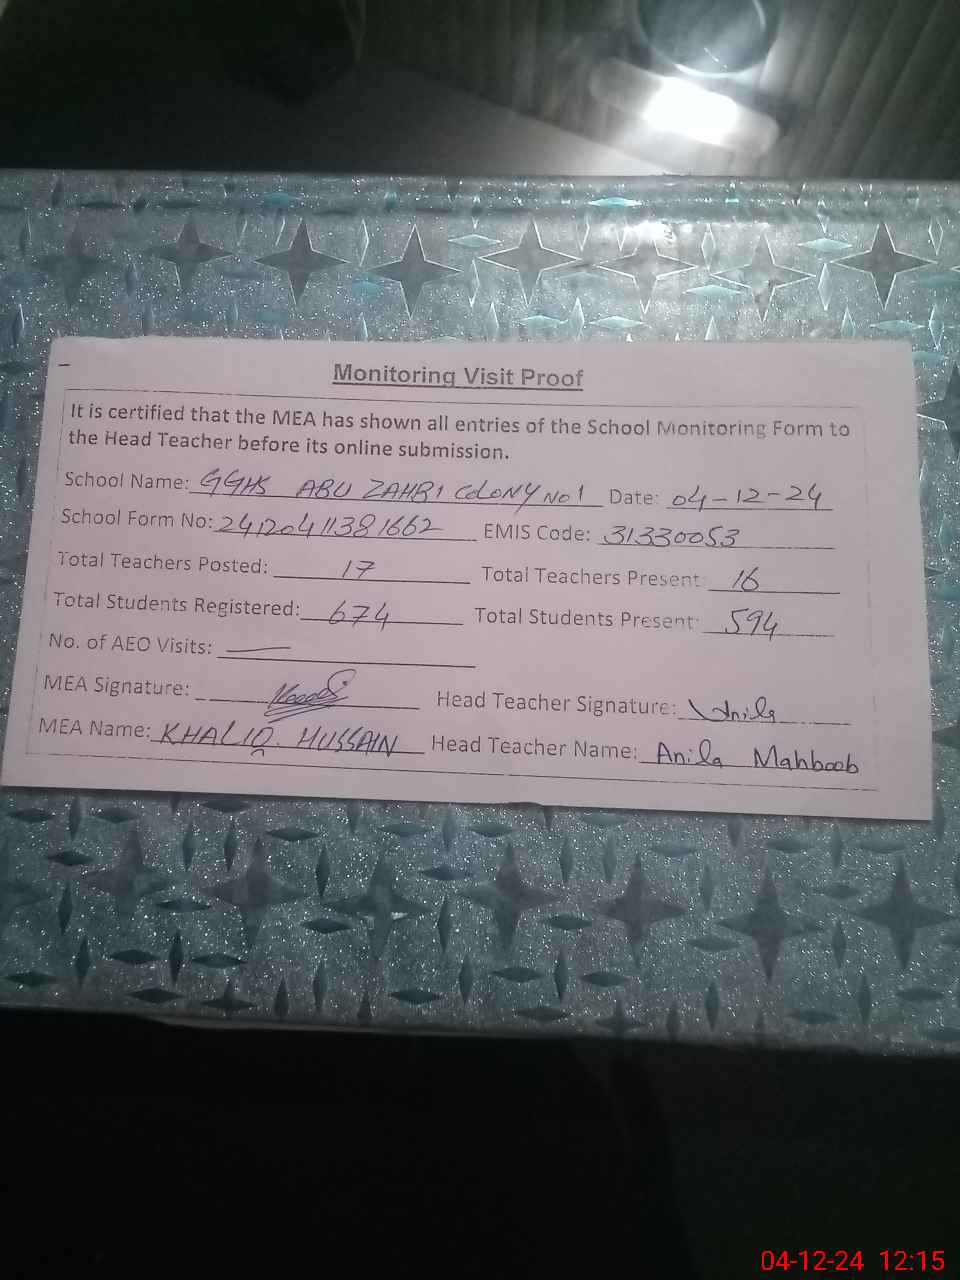 Monitoring Visit Proof
It is certified that the MEA has shown all entries of the School Monitoring Form to
the Head Teacher before its online submission.
School Name: GGHS ABU ZAHBI COLONY No 1 Date: 04-12-24
School Form No: 24120411381662 EMIS Code: 31330053
Total Teachers Posted: 17 Total Teachers Present: 16
Total Students Registered: 674 Total Students Present: 594
No. of AEO Visits: —
MEA Signature: Head Teacher Signature: Anila
MEA Name: KHALIQ HUSSAIN Head Teacher Name: Anila Mahboob
04-12-24 12:15